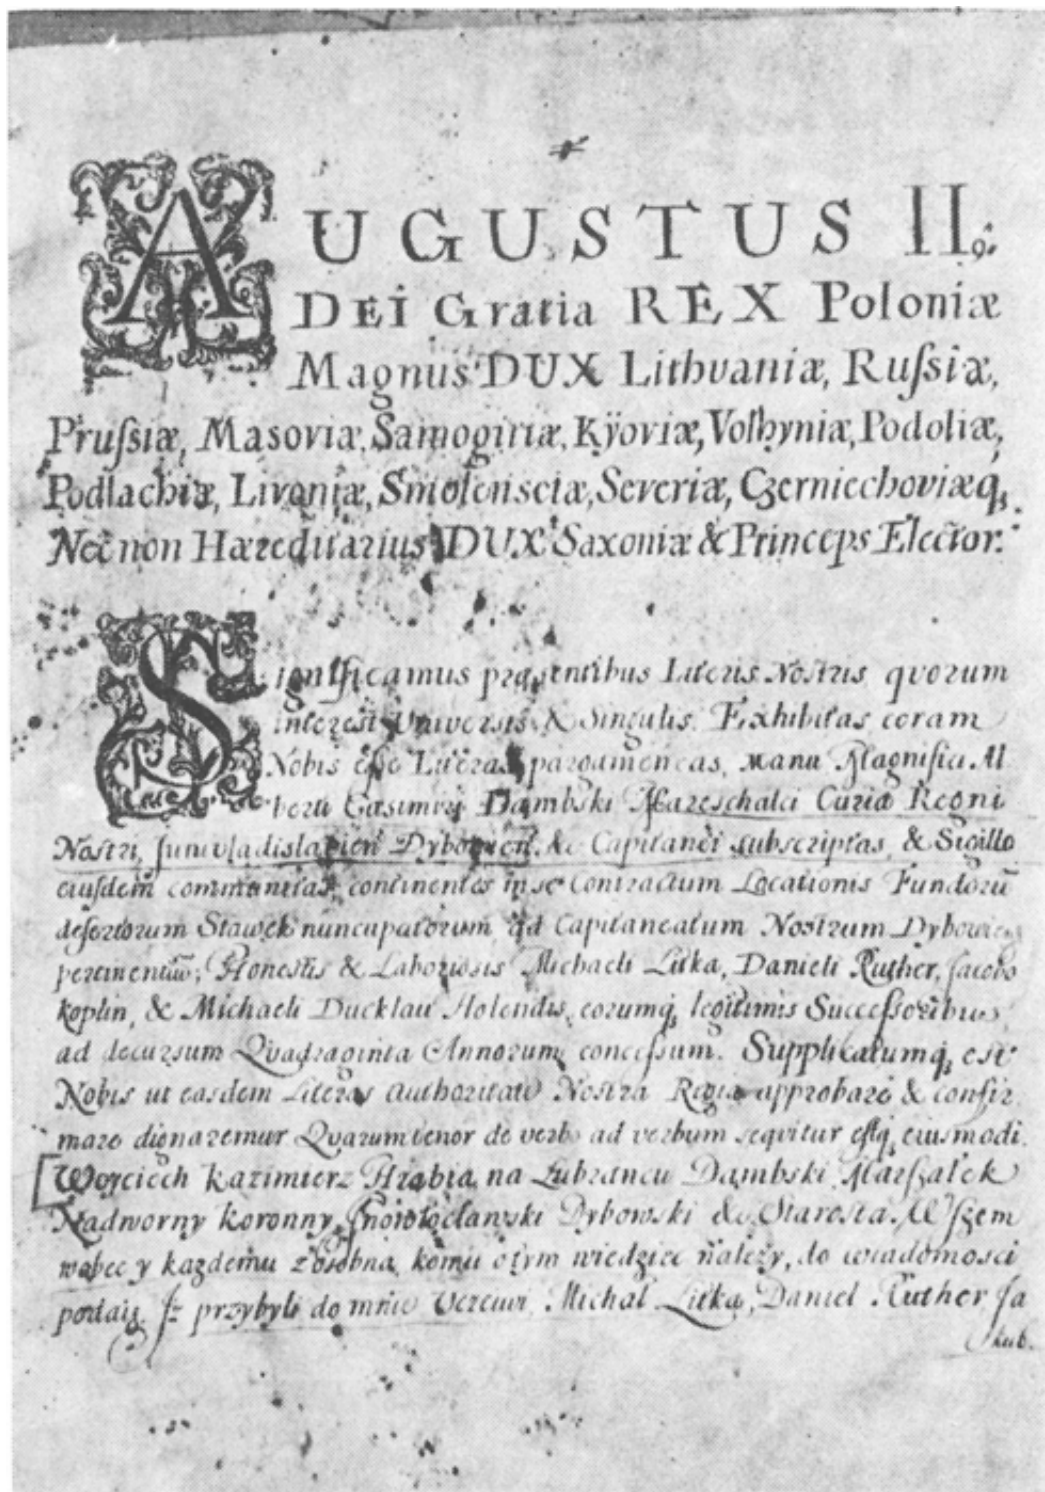 AUGUSTUS II9:
DEI Gratia REX Poloniæ
Magnus DUX Lithvaniæ, Rußiæ,
Prußiæ, Masoviæ, Samogitiæ, Kÿoviæ, Volhyniæ, Podoliæ,
Podlachiæ, Livoniæ, Smolensciæ, Severiæ, Czerniechoviæq́;
Nec non Hæreditarius DUX Saxoniæ & Princeps Elector.
Significamus præsentibus Literis Nostris quorum
interest Universis & Singulis. Exhibitas coram
Nobis eſſe Literas pargameneas, manu Magnifici Al
berti Casimiri Dąmbski Mareschalci Curiæ Regni
Nostri, Junivladislavien Dybovien. &c Capitanei subscriptas, & Sigillo
eiusdem communitas, continentes in se Contractum Locationis Fundorū
desertorum Stawek nuncupatorum, ad Capitaneatum Nostrum Dybovien
pertinentiū; Honestis & Laboriosis Michaeli Litka, Danieli Ruther, Jacobo
Koplin, & Michaeli Ducklau Holendis, eorumq́; legitimis Succeſſoribus,
ad decursum Quadraginta Annorum conceſſum. Supplicatumq́; est
Nobis ut easdem Literas Authoritate Nostra Regia approbare & confir
mare dignaremur Quarum tenor de verbo ad verbum sequitur eſtq́; eiusmodi.
Woyciech Kazimierz Hrabia na Lubrancu Dąmbski Marszałek
Nadworny Koronny, Jnowłocławski Dybowski &c. Starosta. Wszem
wobec y kazdemu z osobna, komu o tym wiedziec należy, do wiadomosci
podaię. Jz przybyli do mnie Uczciwi, Michał Litka, Daniel Ruther, Ja
kub.